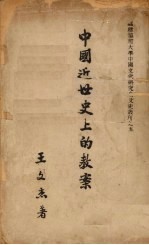 福建協和大學中國文化研究會文史叢刊之五
中國近世史上的教案
王文杰著